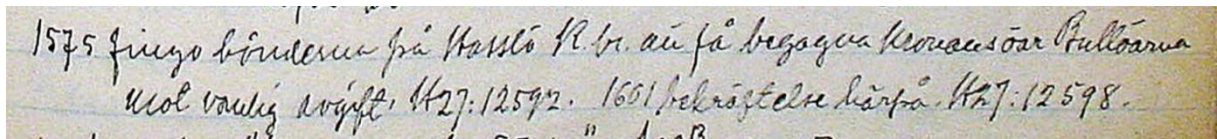 1575 fingo bönderna på Hasslö K. br. att få begagna Kronans öar Bullöarna
mot vanlig avgift. H27:12592. 1601 bekräftelse härpå. H27:12598.